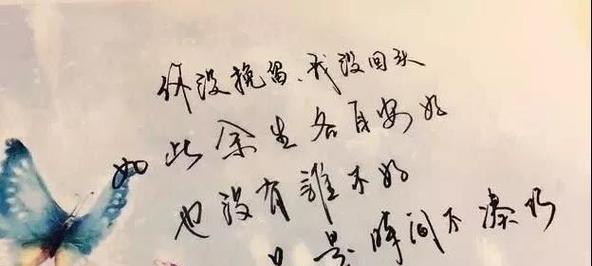 你没挽留、我没回头
如此余生各自安好
也没有誰不好
只是時间不凑巧